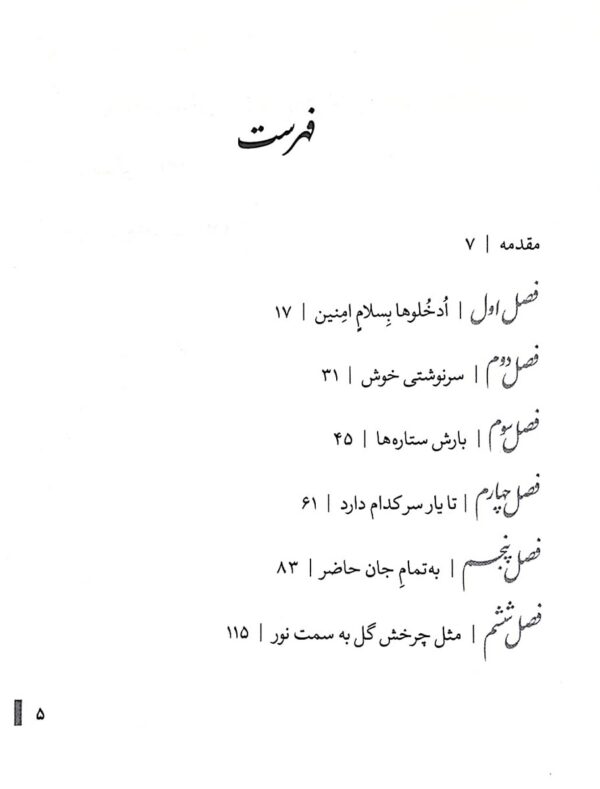 فهرست
مقدمه | ۷
فصل اول | اُدخُلوها بِسلامٍ امِنین | ۱۷
فصل دوم | سرنوشتی خوش | ۳۱
فصل سوم | بارش ستاره‌ها | ۴۵
فصل چهارم | تا یار سر کدام دارد | ۶۱
فصل پنجم | به‌تمامِ جان حاضر | ۸۳
فصل ششم | مثل چرخش گل به سمت نور | ۱۱۵
۵